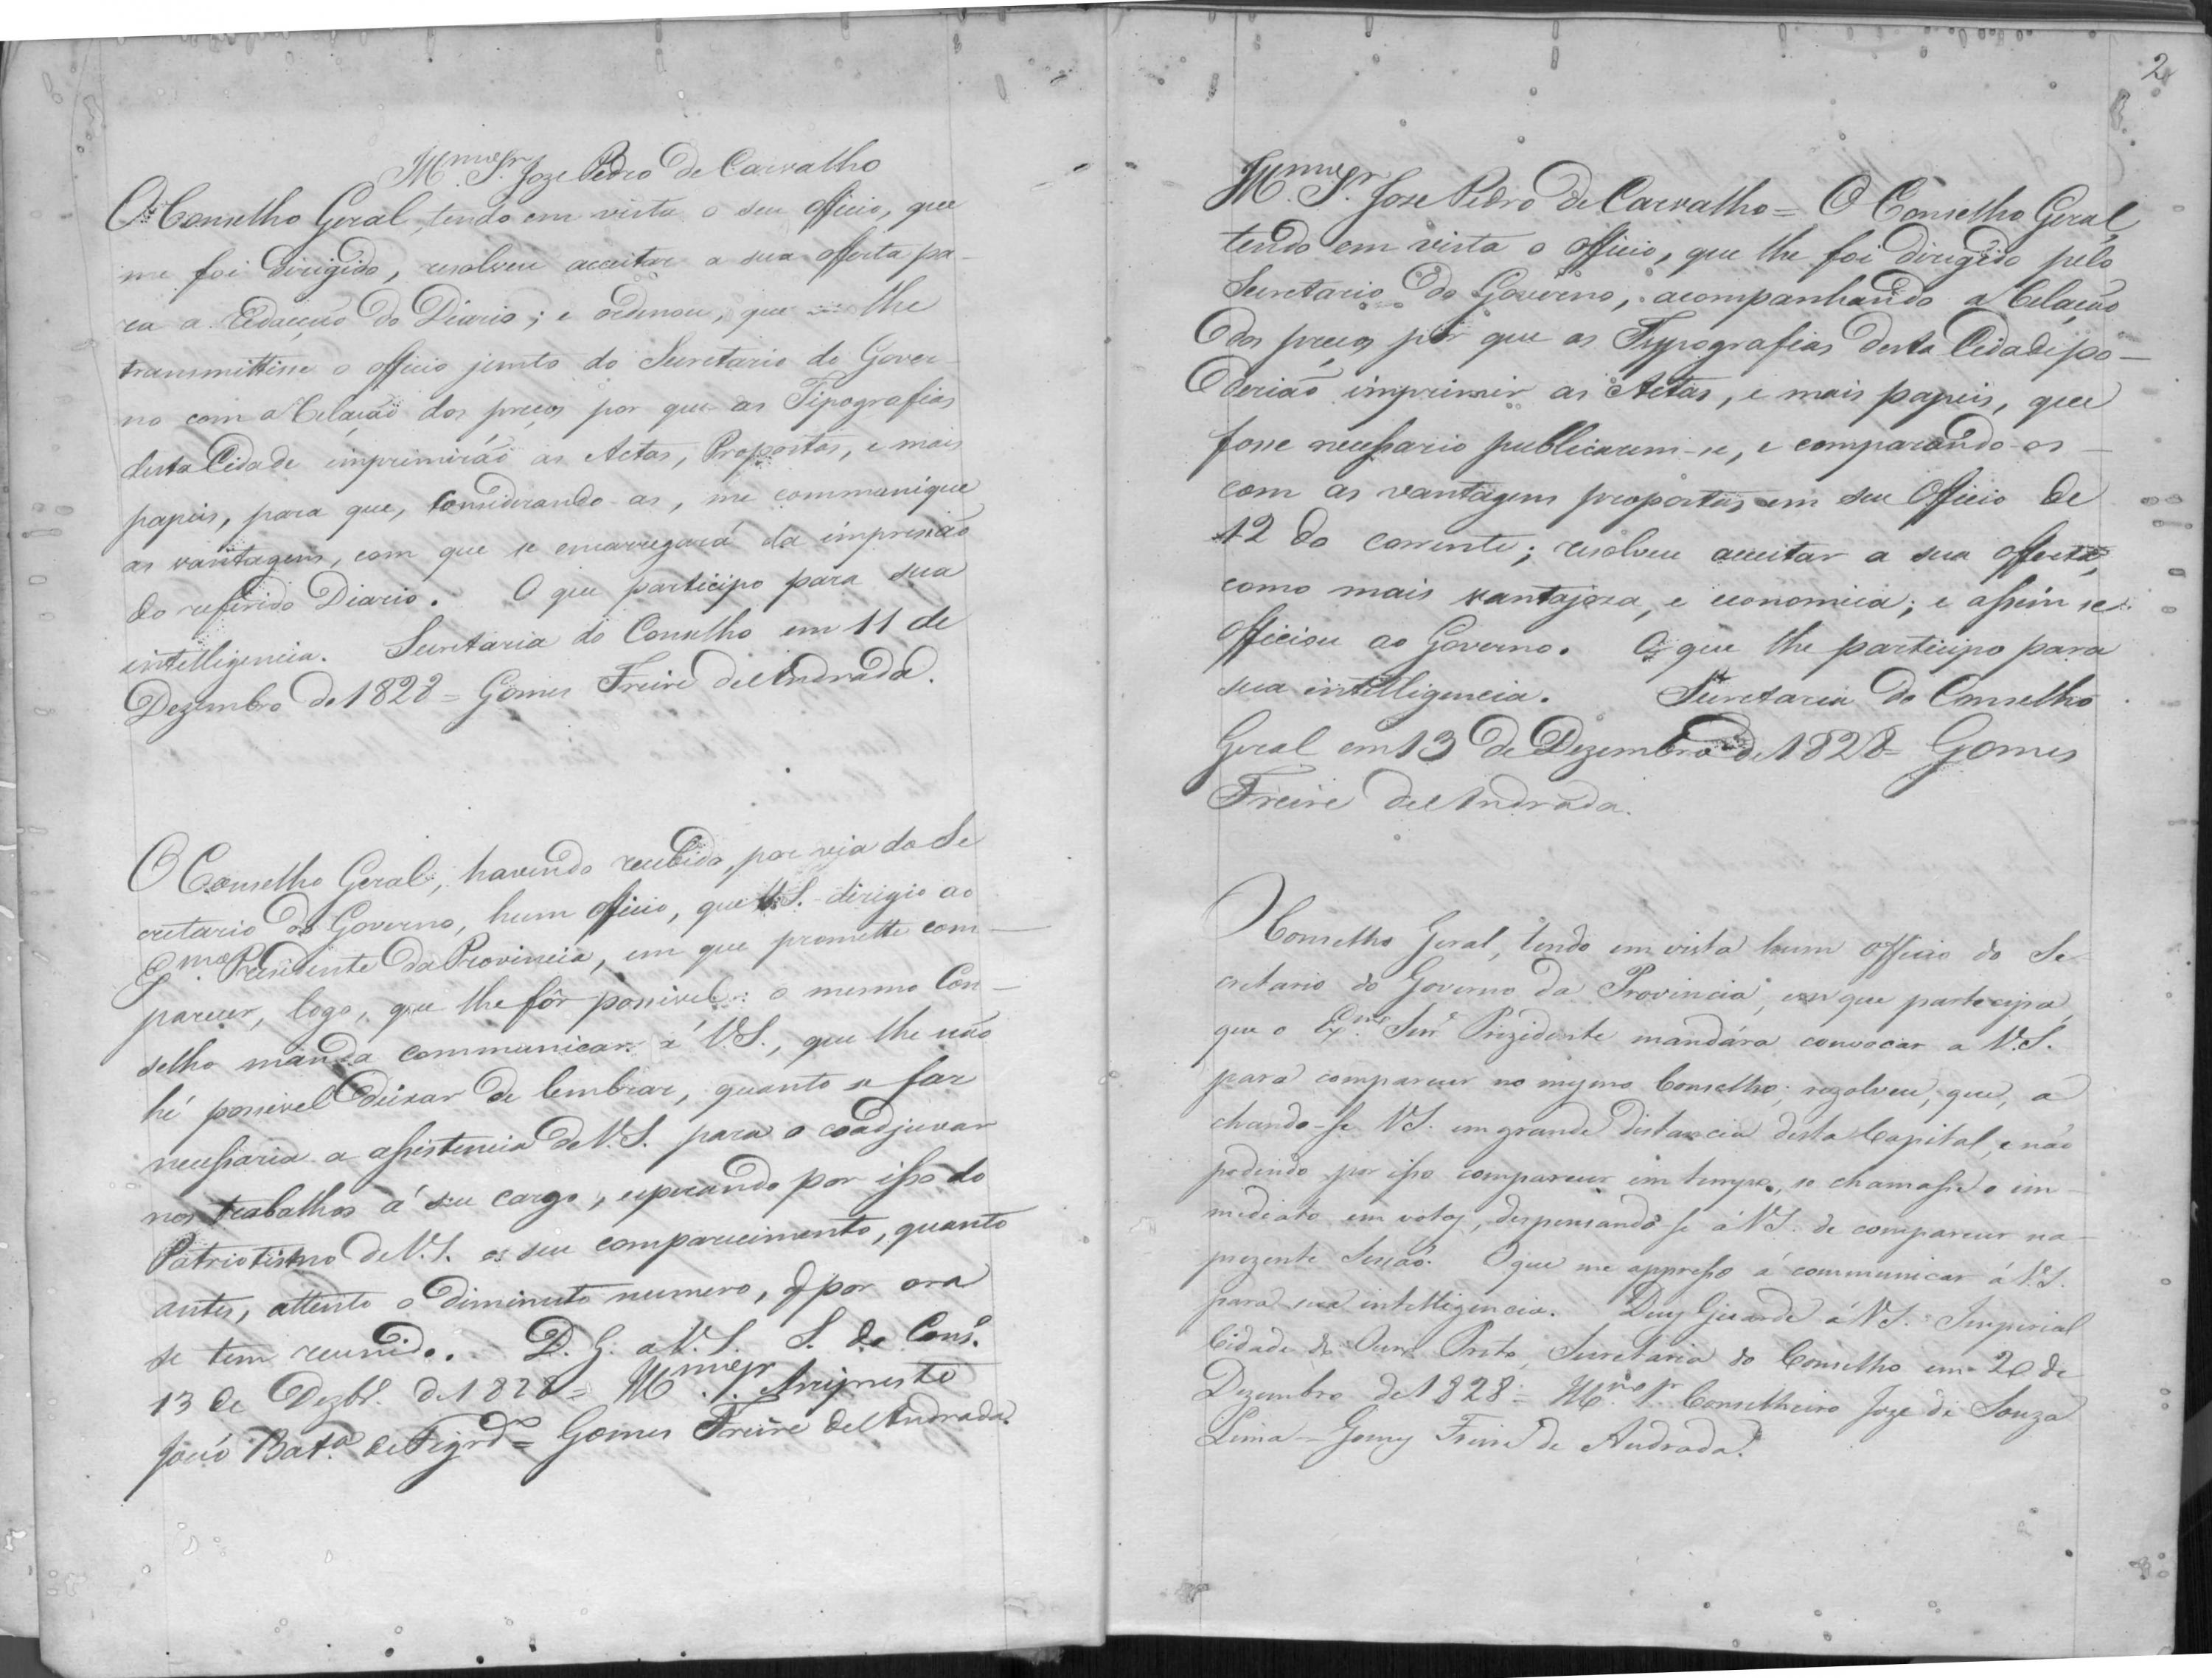 Illmo. Sr. Joze Pedro de Carvalho
O Conselho Geral, tendo em vista o seu officio, que
me foi dirigido, resolveu acceitar a sua offerta pa-
ra a Redacção do Diario; e ordenou, que lhe
transmittisse o officio junto do Secretario do Gover-
no com a Relação dos preços por que as Tipografias
desta Cidade imprimiráõ as Actas, Propostas, e mais
papeis, para que, considerando-as, me communique
as vantagens, com que se encarregará da impressão
do referido Diario. O que participo para sua
intelligencia. Secretaria do Conselho em 11 de
Dezembro de 1828 = Gomes Freire de Andrada.
O Conselho Geral, havendo recebido, por via do Se
cretario do Governo, hum officio, que V.S. dirigio ao
Exmo. Presidente da Provincia, em que promette com-
parecer, logo, que lhe fôr possivel: o mesmo Con-
selho manda communicar á V.S., que lhe não
hé possivel deixar de lembrar, quanto se faz
necessaria a assistencia de V.S. para o coadjuvar
nos trabalhos á seu cargo, esperando por isso do
Patriotismo de V.S. o seu comparecimento, quanto
antes, attento o diminuto numero, q por ora
se tem reunido. D. G. a V. S. S. do Cons.
13 de Dezbr. de 1828 = Illmo. Sr. Arcipreste
João Bata. de Figrdo = Gomes Freire de Andrada.
2
Illmo. Sr. Joze Pedro de Carvalho = O Conselho Geral,
tendo em vista o officio, que lhe foi dirigido pelo
Secretario do Governo, acompanhando a Relação
dos preços por que as Typografias desta Cidade po-
deriaõ imprimir as Actas, e mais papeis, que
fosse necessario publicarem-se, e comparando-os
com as vantagens propostas em seu Officio de
12 do corrente; resolveu acceitar a sua offerta,
como mais vantajoza, e economica; e assim se
officiou ao Governo. O que lhe participo para
sua intelligencia. Secretaria do Conselho
Geral em 13 de Dezembro de 1828 = Gomes
Freire de Andrada.
O Conselho Geral, tendo em vista hum officio do Se-
cretario do Governo da Provincia, em que participa,
que o Exmo. Snr. Prezidente mandára convocar a V.S.
para comparecer no mesmo Conselho; rezolveu, que, a
chando-se V.S. em grande distancia desta Capital, e não
podendo por isso comparecer em tempo, se chamasse o im-
mediato em votos, despensando-se á V.S. de comparecer na
prezente Sessaõ. O que me appresso á communicar á V.S.
para sua intelligencia. Deus Guarde á V.S. Imperial
Cidade do Ouro Preto, Secretaria do Conselho em 20 de
Dezembro de 1828 = Illmo. Sr. Conselheiro Joze de Souza
Lima = Gomes Freire de Andrada.